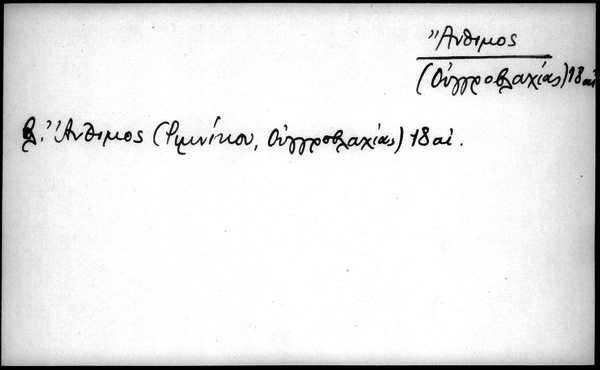 Ἄνθιμος
(Οὑγγροβλαχίας) 18 αἰ
βλ. Ἄνθιμος (Ριμνίκου, Οὑγγροβλαχίας) 18 αἰ.